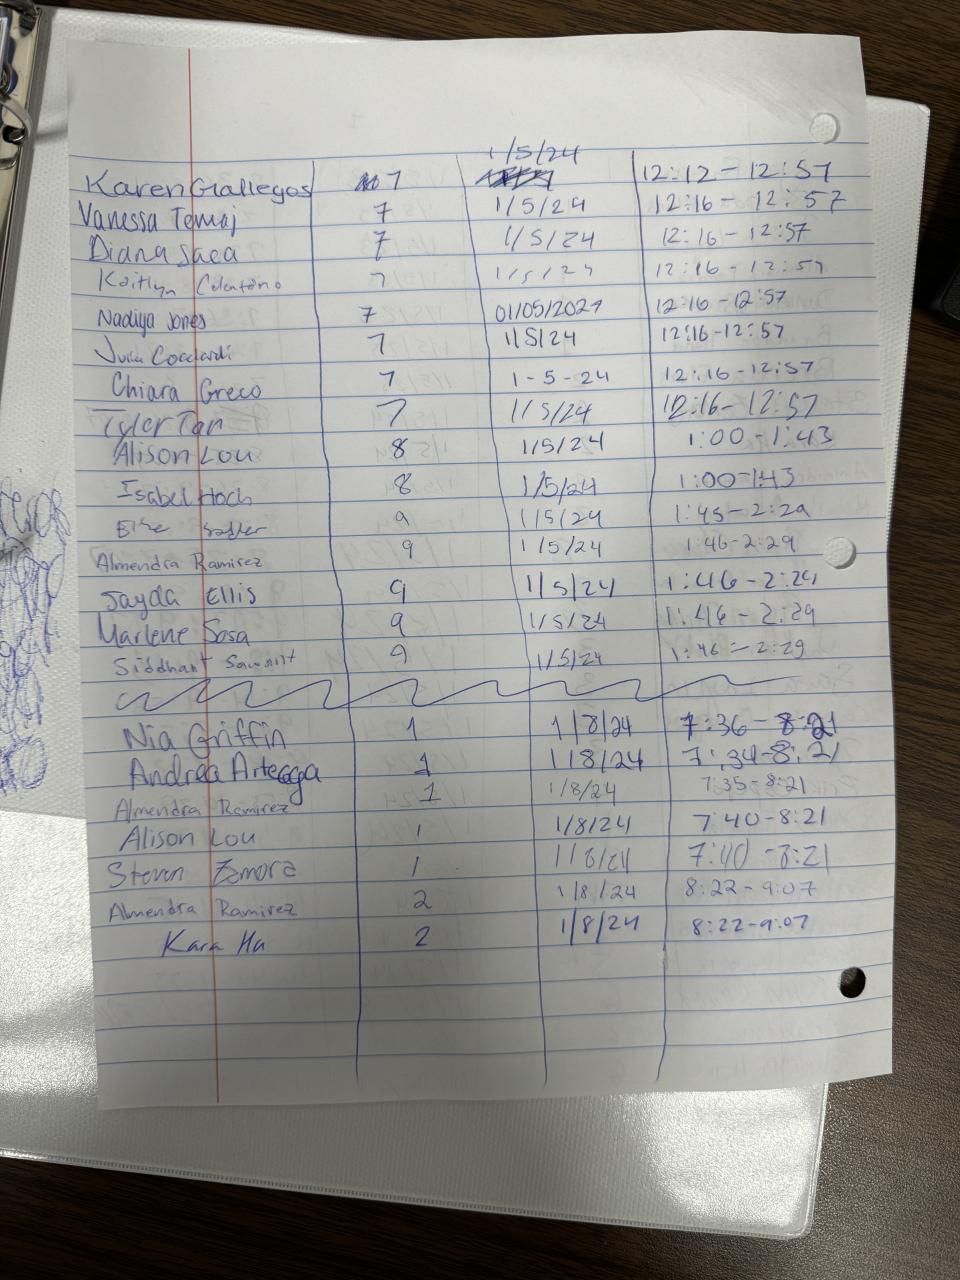 Karen Gallegos 7 1/5/24 12:12 - 12:57
Vanessa Temaj 7 1/5/24 12:16 - 12:57
Diana Saea 7 1/5/24 12:16 - 12:57
Kaitlyn 7 1/5/24 12:16 - 12:57
Nadiya Jones 7 01/05/2024 12:16 - 12:57
Julia Cocciardi 7 1/5/24 12:16 - 12:57
Chiara Greco 7 1-5-24 12:16 - 12:57
Tyler Tan 7 1/5/24 12:16 - 12:57
Alison Lou 8 1/5/24 1:00 - 1:43
Isabel Hoch 8 1/5/24 1:00 - 1:43
9 1/5/24 1:45 - 2:29
Almendra Ramirez 9 1/5/24 1:46 - 2:29
Jayda Ellis 9 1/5/24 1:46 - 2:29
Marlene Sosa 9 1/5/24 1:46 - 2:29
Siddhant Sawant 9 1/5/24 1:46 - 2:29
Nia Griffin 1 1/8/24 7:36 - 8:21
Andrea Arteaga 1 1/8/24 7:34 - 8:21
Almendra Ramirez 1 1/8/24 7:35 - 8:21
Alison Lou 1 1/8/24 7:40 - 8:21
Steven Zamora 1 1/8/24 7:40 - 8:21
Almendra Ramirez 2 1/8/24 8:22 - 9:07
Kara Hu 2 1/8/24 8:22 - 9:07